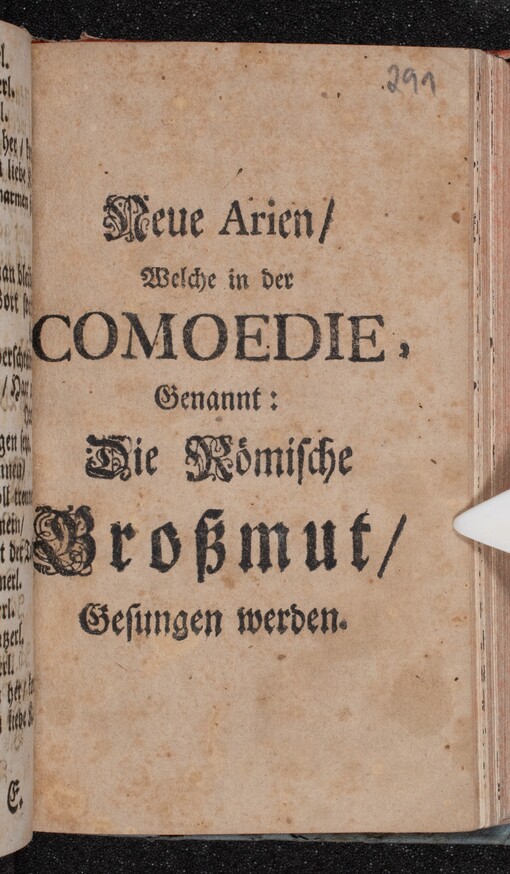 291
Neue Arien/
Welche in der
COMOEDIE,
Genannt:
Die Römische
Großmut/
Gesungen werden.